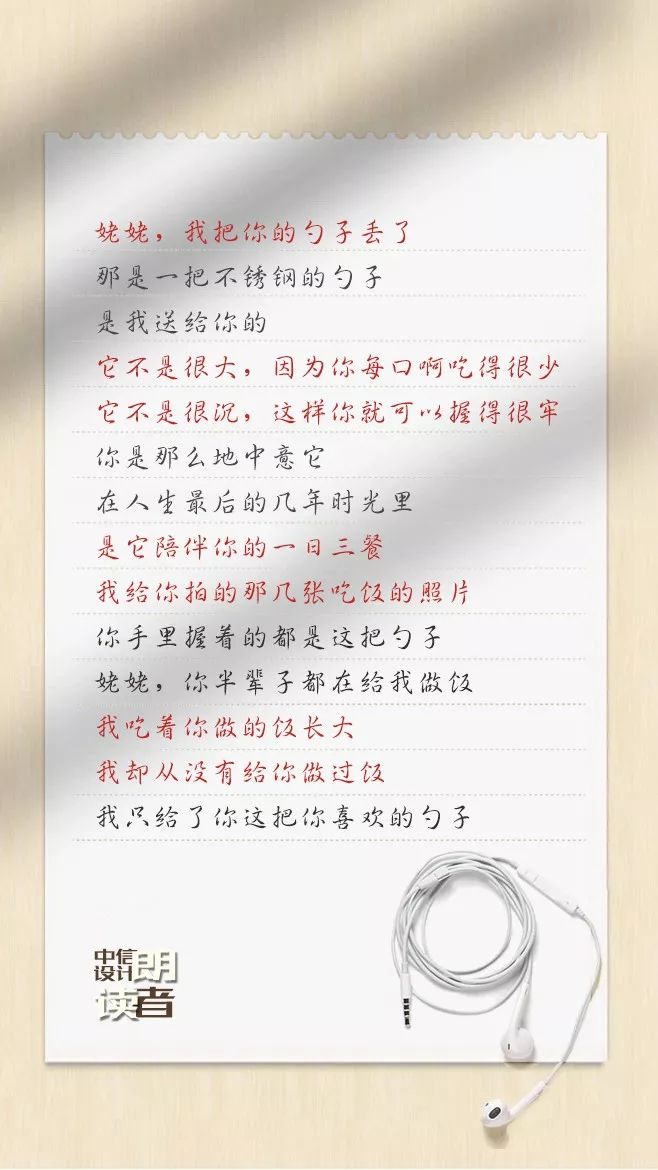 姥姥，我把你的勺子丢了
那是一把不锈钢的勺子
是我送给你的
它不是很大，因为你每口啊吃得很少
它不是很沉，这样你就可以握得很牢
你是那么地中意它
在人生最后的几年时光里
是它陪伴你的一日三餐
我给你拍的那几张吃饭的照片
你手里握着的都是这把勺子
姥姥，你半辈子都在给我做饭
我吃着你做的饭长大
我却从没有给你做过饭
我只给了你这把你喜欢的勺子
中信
设计朗
读者